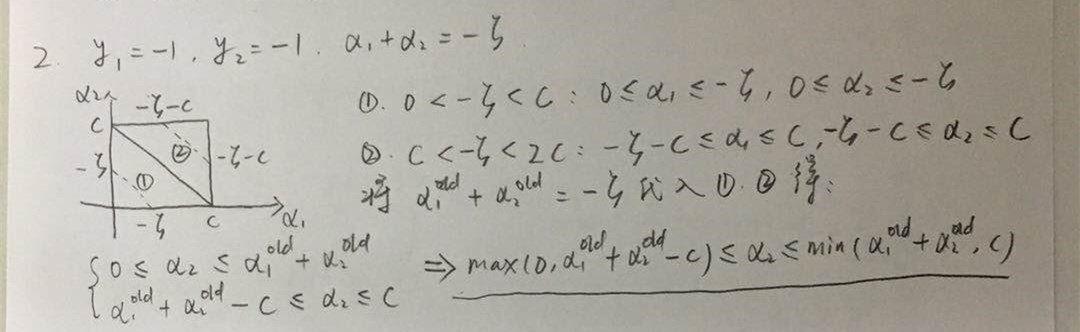 2. y₁ = -1, y₂ = -1. α₁ + α₂ = -ζ.
α₂
-ζ-C
C
②
-ζ-C
-ζ
①
-ζ
C
α₁
①. 0 < -ζ < C : 0 ≤ α₁ ≤ -ζ, 0 ≤ α₂ ≤ -ζ
②. C < -ζ < 2C : -ζ-C ≤ α₁ ≤ C, -ζ-C ≤ α₂ ≤ C
将 α₁^old + α₂^old = -ζ 代入 ①. ② 得:
{ 0 ≤ α₂ ≤ α₁^old + α₂^old
α₁^old + α₂^old - C ≤ α₂ ≤ C
⇒ max(0, α₁^old + α₂^old - C) ≤ α₂ ≤ min(α₁^old + α₂^old, C)